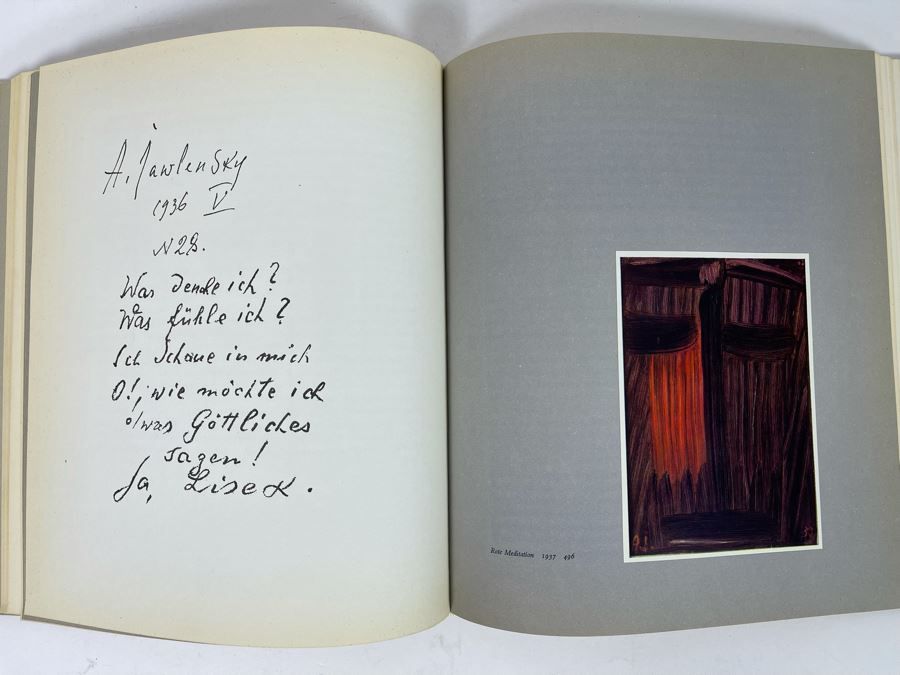 A. Jawlensky
1936 V
N
Was denke ich?
Was fühle ich?
Ich Schaue in mich
O!, wie möchte ich
etwas Göttliches
sagen!
Ja,
Rote Meditation 1937 496